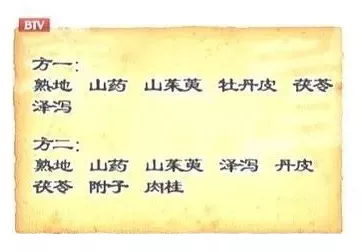 BTV
方一：
熟地 山药 山茱萸 牡丹皮 茯苓
泽泻
方二：
熟地 山药 山茱萸 泽泻 丹皮
茯苓 附子 肉桂